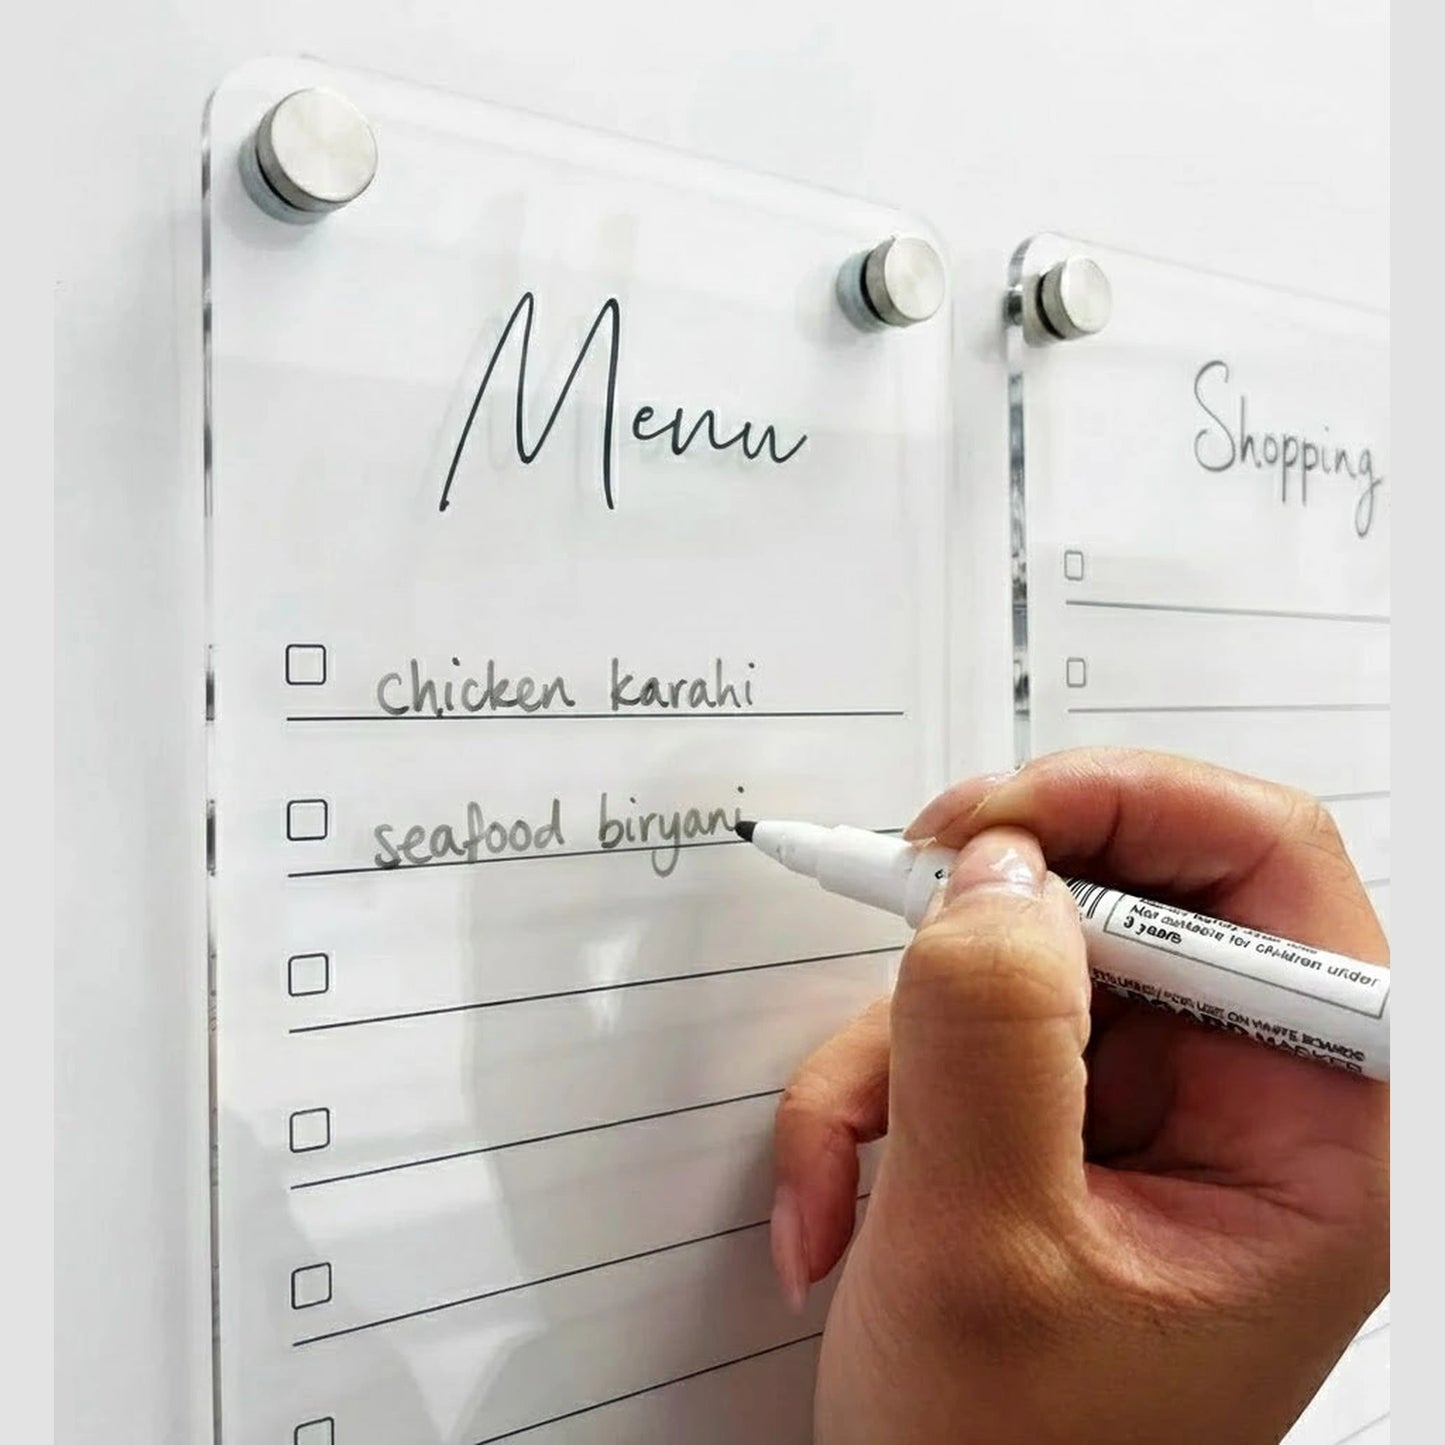 Menu
Shopping
chicken karahi
seafood biryani
Not suitable for children under
3 years
ON WHITE BOARDS
BOARD MARKER